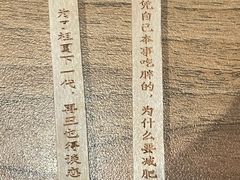 为了祖国下一代，再丑也得谈恋
凭自己本事吃胖的，为什么要减肥